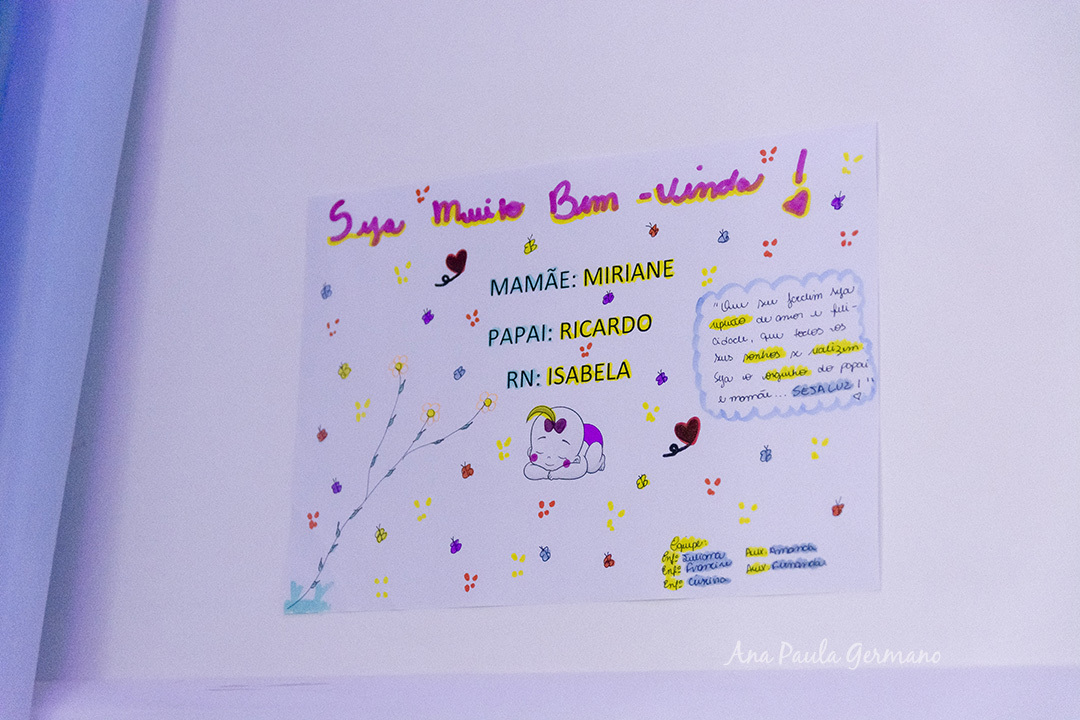 Seja Muito Bem-Vinda!
MAMÃE: MIRIANE
PAPAI: RICARDO
RN: ISABELA
"Que seu jardim seja
repleto de amor e feli-
cidade, que todos os
seus sonhos se realizem.
Seja o orgulho do papai
e mamãe... SEJA LUZ!"
Equipe:
Enfª Juliana Aux. Amanda
Enfª Francine Aux. Fernanda
Enfª
Ana Paula Germano